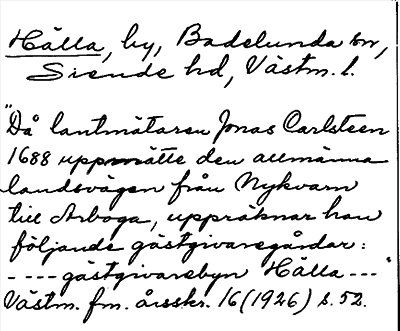 Hälla, by, Badelunda sn,
Siende hd, Västm. l.
"Då lantmätaren Jonas Carlsteen
1688 uppmätte den allmänna
landsvägen från Nykvarn
till Arboga, uppräknar han
följande gästgivaregårdar:
----gästgivarebyn Hälla---"
Västm. fm. årsskr. 16(1926) s. 52.